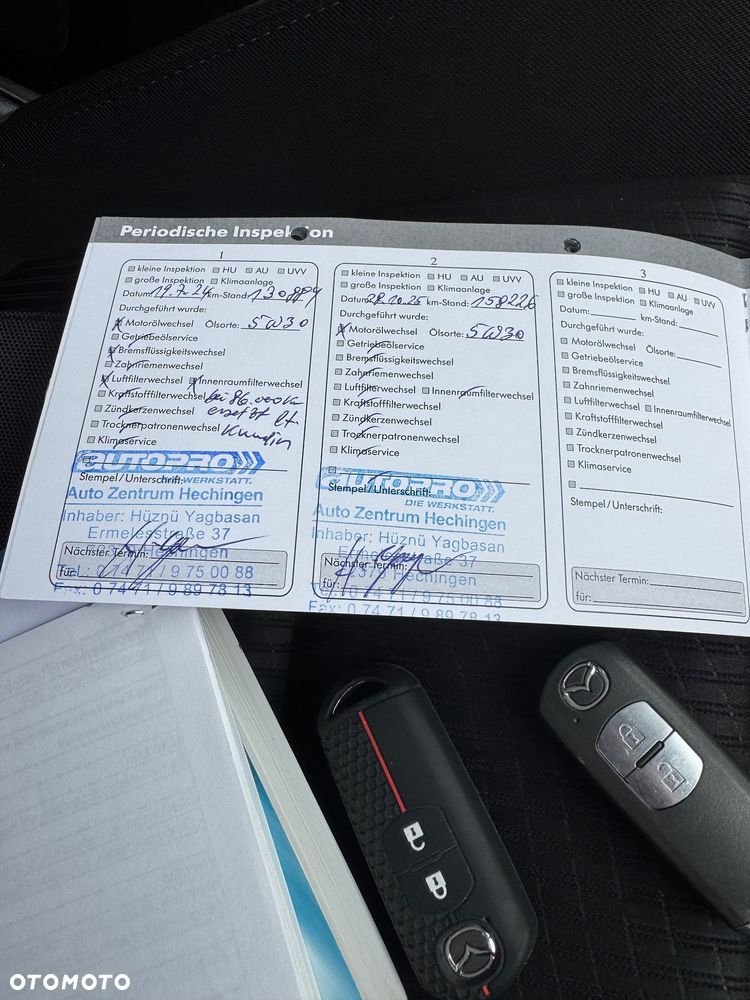 Periodische Inspektion
1
kleine Inspektion HU AU UVV
große Inspektion Klimaanlage
Datum: 19.7.24 km-Stand: 130884
Durchgeführt wurde:
Motorölwechsel Ölsorte: 5W30
Getriebeölservice
Bremsflüssigkeitswechsel
Zahnriemenwechsel
Luftfilterwechsel Innenraumfilterwechsel
Kraftstofffilterwechsel bei 86.000k
Zündkerzenwechsel ersetzt lt.
Trocknerpatronenwechsel Kundin
Klimaservice
AUTOPRO
DIE WERKSTATT.
Stempel/Unterschrift:
Auto Zentrum Hechingen
Inhaber: Hüznü Yagbasan
Ermelesstraße 37
Hechingen
Nächster Termin:
für:
Tel.: 0 74 71 / 9 75 00 88
Fax: 0 74 71 / 9 89 78 13
2
kleine Inspektion HU AU UVV
große Inspektion Klimaanlage
Datum: 28.10.25 km-Stand: 158226
Durchgeführt wurde:
Motorölwechsel Ölsorte: 5W30
Getriebeölservice
Bremsflüssigkeitswechsel
Zahnriemenwechsel
Luftfilterwechsel Innenraumfilterwechsel
Kraftstofffilterwechsel
Zündkerzenwechsel
Trocknerpatronenwechsel
Klimaservice
Stempel/Unterschrift:
AUTOPRO
DIE WERKSTATT.
Auto Zentrum Hechingen
Inhaber: Hüznü Yagbasan
37
72379 Hechingen
Nächster Termin:
für:
Tel.: 0 74 71 / 9 75 00 88
Fax: 0 74 71 / 9 89 78 13
3
kleine Inspektion HU AU UVV
große Inspektion Klimaanlage
Datum: km-Stand:
Durchgeführt wurde:
Motorölwechsel Ölsorte:
Getriebeölservice
Bremsflüssigkeitswechsel
Zahnriemenwechsel
Luftfilterwechsel Innenraumfilterwechsel
Kraftstofffilterwechsel
Zündkerzenwechsel
Trocknerpatronenwechsel
Klimaservice
Stempel/Unterschrift:
Nächster Termin:
für:
OTOMOTO